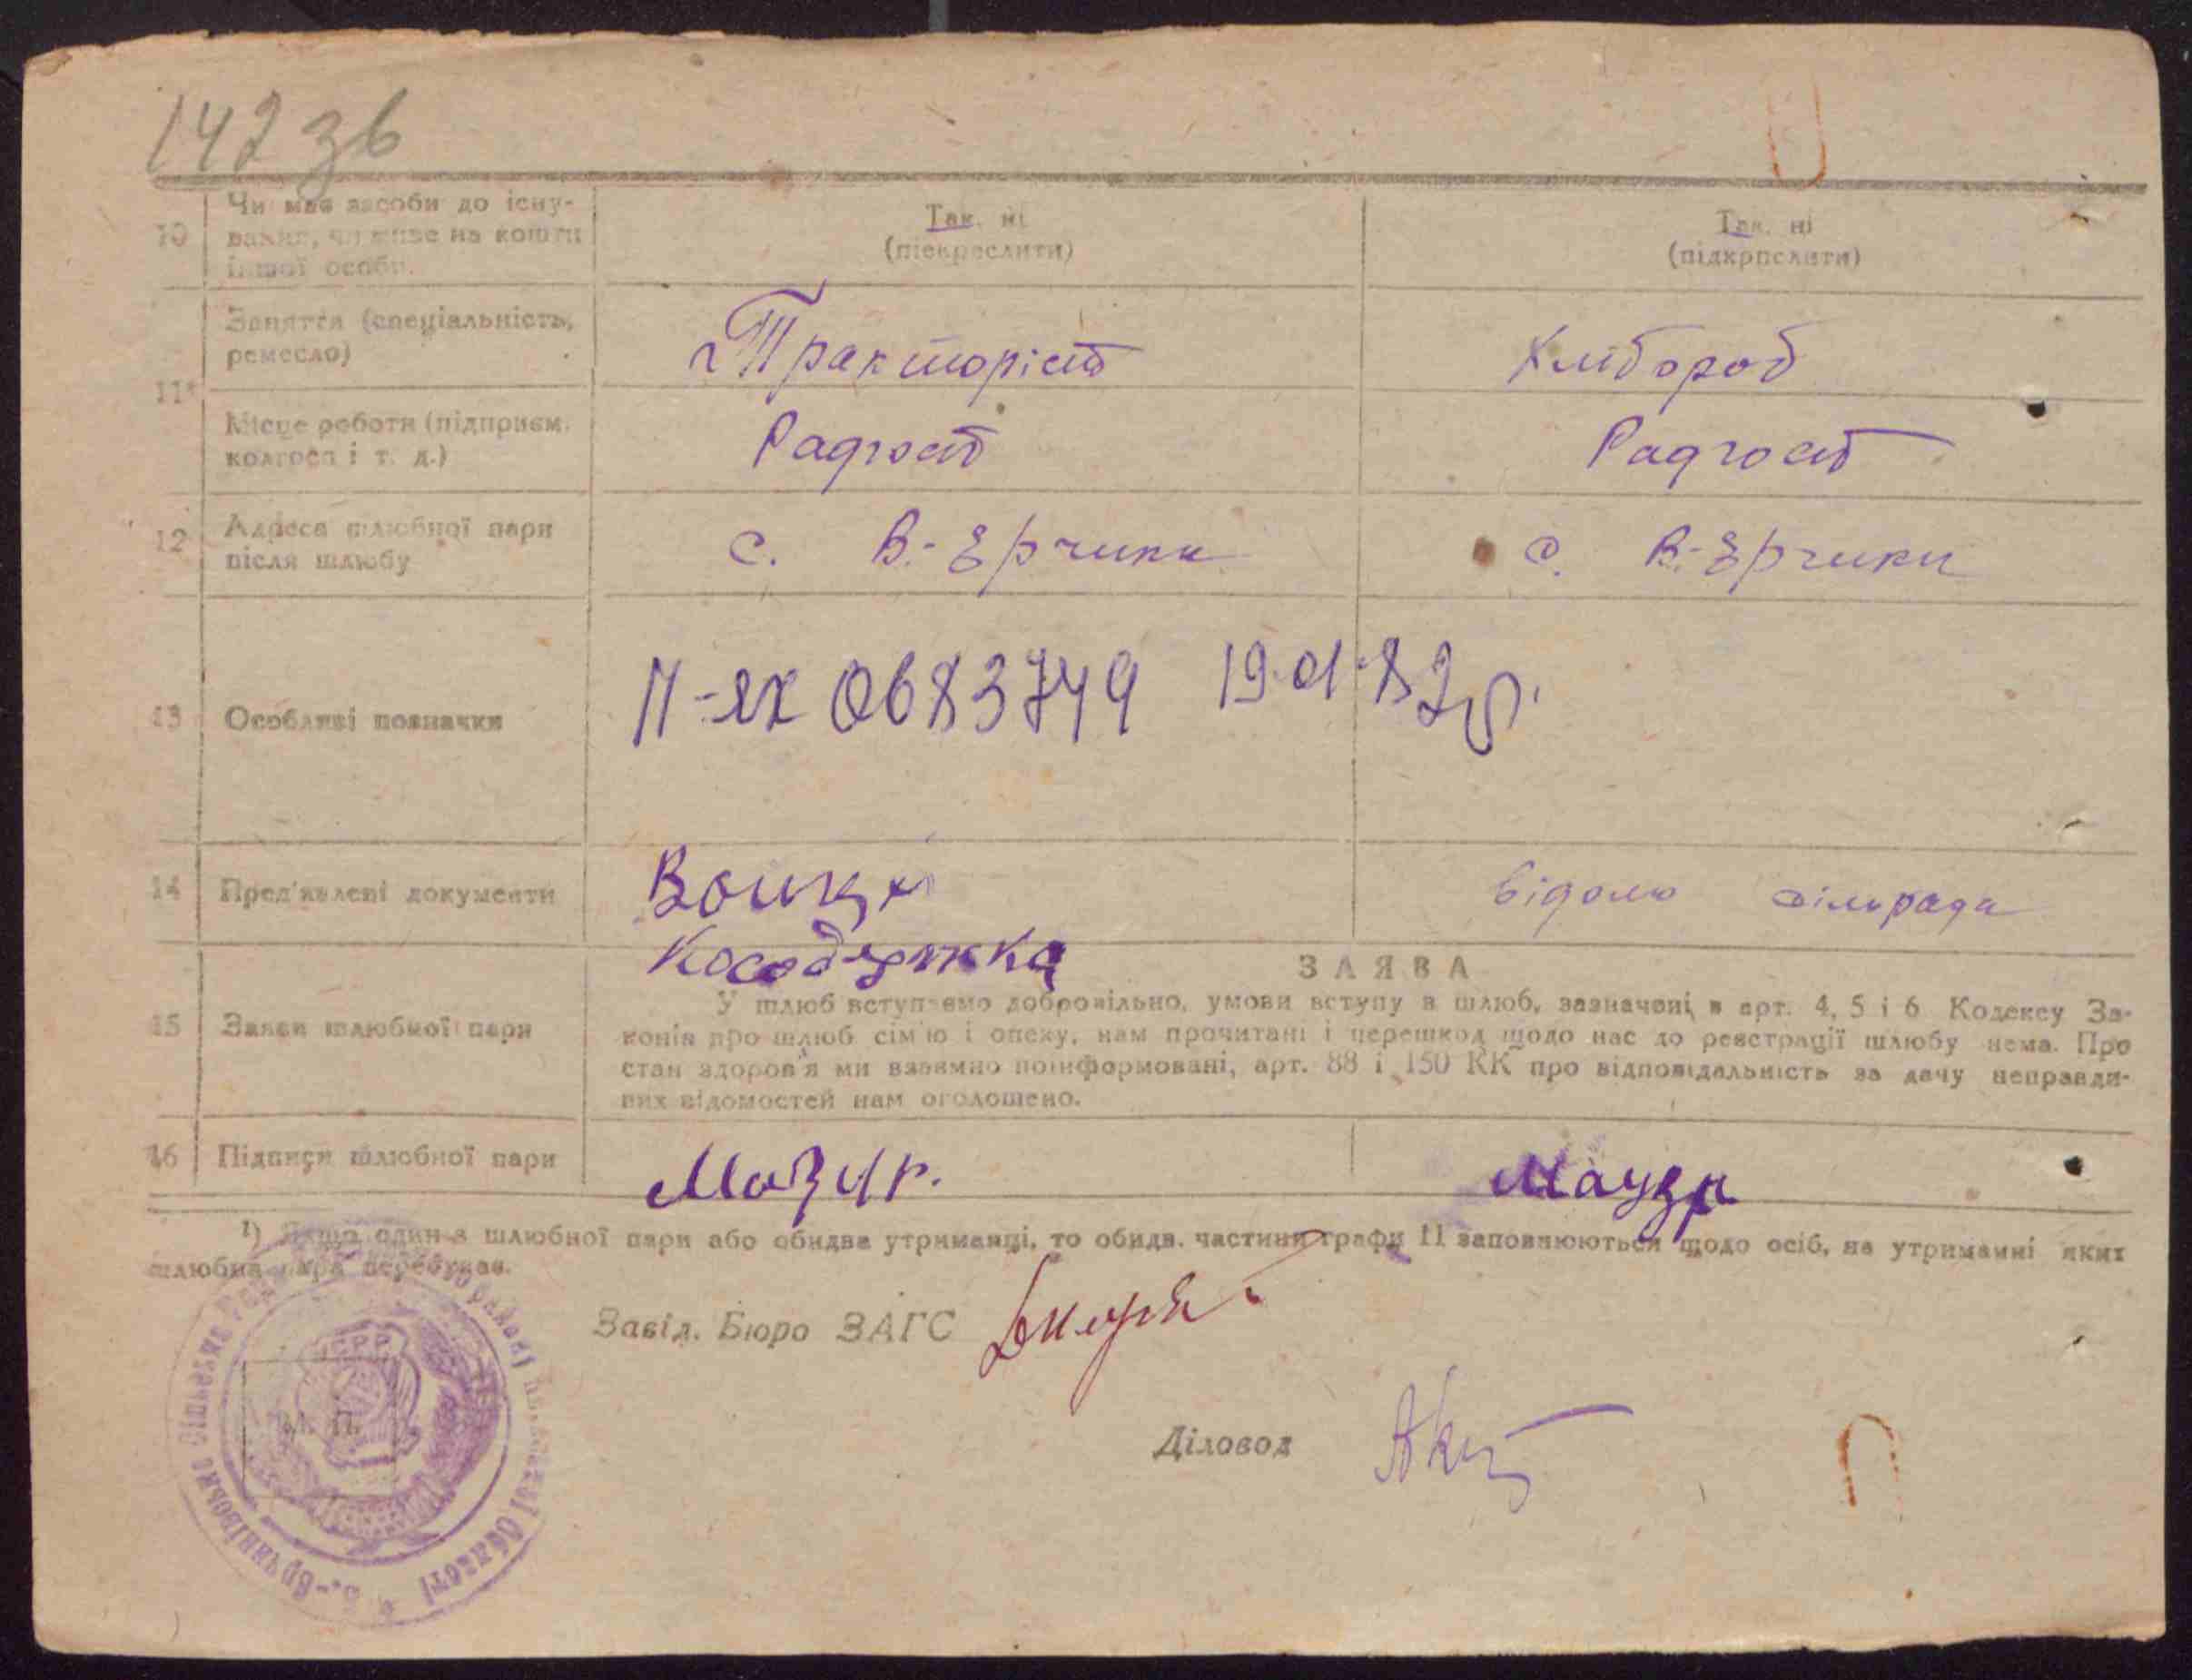 142 зв
10 Чи має засоби до існу- Так. ні Так. ні
вання, чи живе на кошти (підкреслити) (підкреслити)
іншої особи.
Заняття (спеціальність, Тракторіст Хлібороб
ремесло)
11¹
Місце роботи (підприєм. Радгосп Радгосп
колгосп і т. д.)
12 Адреса шлюбної пари с. В.-Єрчики с. В.-Єрчики
після шлюбу
13 Особливі позначки II-ЯК 0683749 19.01.82р.
14 Пред'явлені документи сільрада
15 Заяви шлюбної пари
ЗАЯВА
У шлюб вступаємо добровільно, умови вступу в шлюб, зазначені в арт. 4, 5 і 6 Кодексу За-
конів про шлюб сім'ю і опеку, нам прочитані і перешкод щодо нас до реєстрації шлюбу нема. Про
стан здоров'я ми взаємно поінформовані, арт. 88 і 150 КК про відповідальність за дачу неправди-
вих відомостей нам оголошено.
16 Підписи шлюбної пари Мазур. Маузр
¹) Якщо один з шлюбної пари або обидва утриманці, то обидв. частини графи 11 заповнюються щодо осіб, на утриманні яких
шлюбна пара перебуває.
Завід. Бюро ЗАГС
Діловод
М. П.